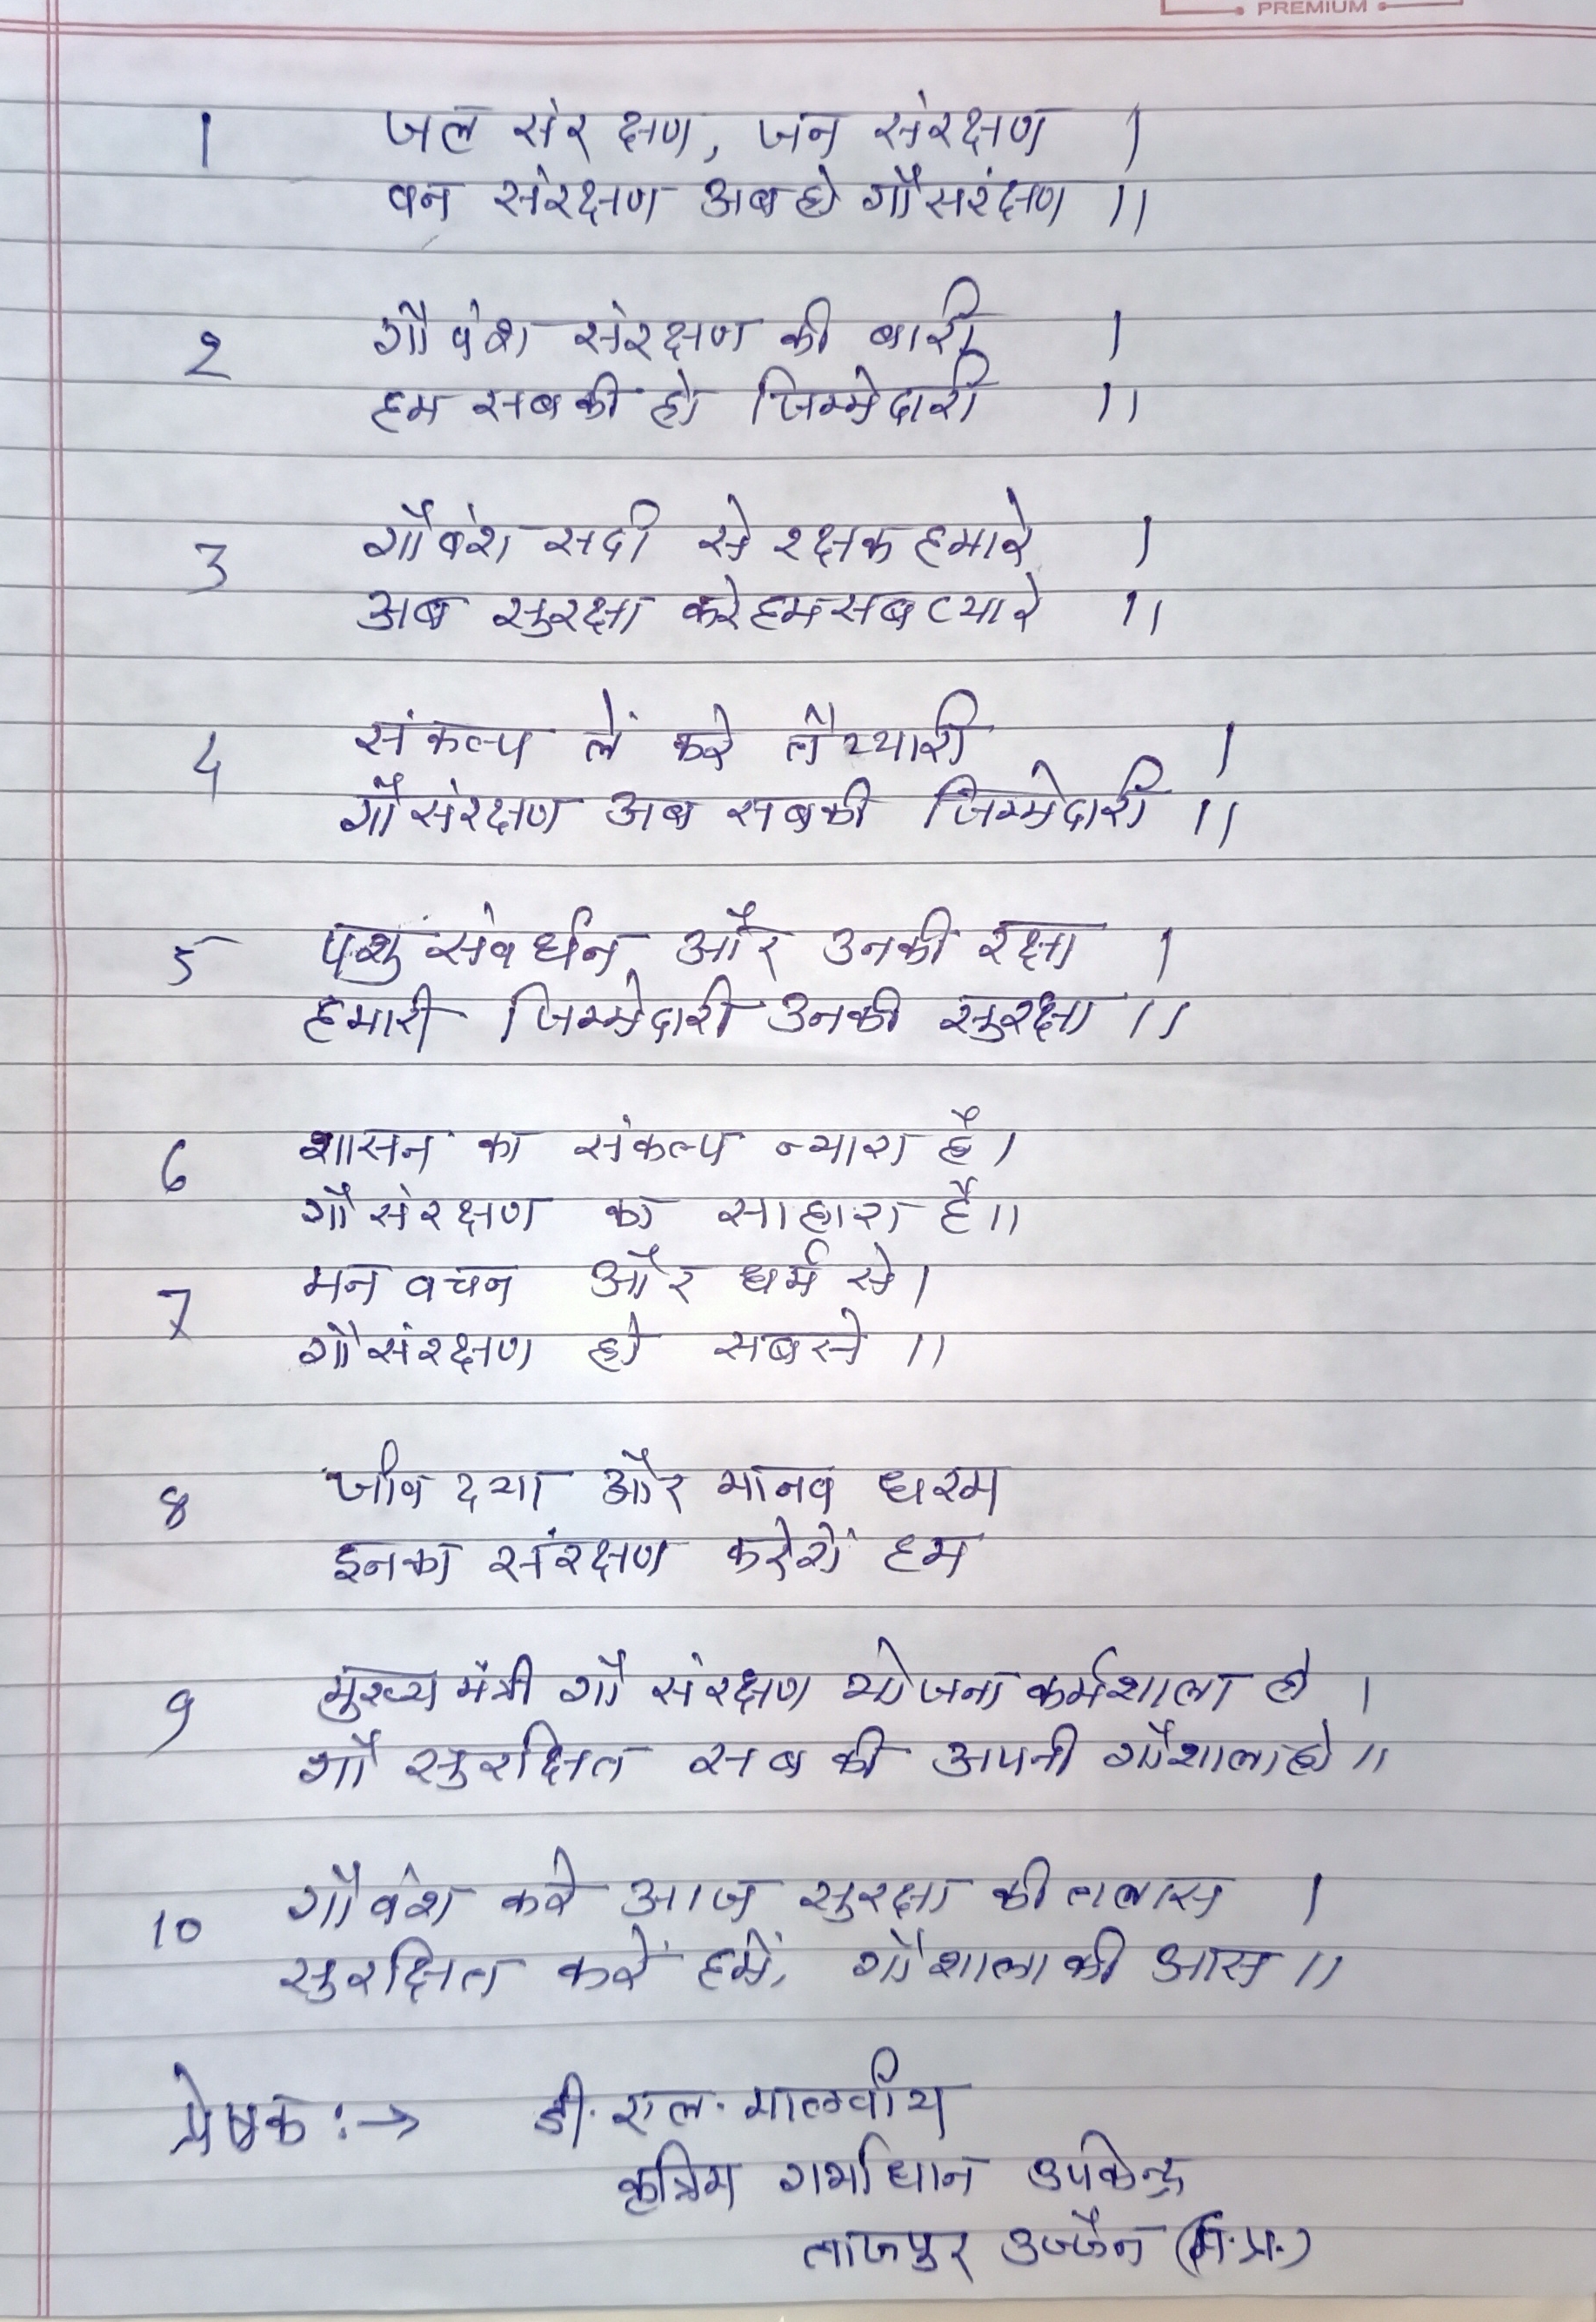 PREMIUM
1 जल संरक्षण, जन संरक्षण ।
वन संरक्षण अब हो गौसरंक्षण ।।
2 गौवंश संरक्षण की बारी ।
हम सबकी हो जिम्मेदारी ।।
3 गौबंश सदी से रक्षक हमारे ।
अब सुरक्षा करे हम सब प्यारे ।।
4 संकल्प लें करे तैय्यारी ।
गौसंरक्षण अब सबकी जिम्मेदारी ।।
5 पशु संवर्धन और उनकी रक्षा ।
हमारी जिम्मेदारी उनकी सुरक्षा ।।
6 शासन का संकल्प न्यारा है ।
गौसंरक्षण का साहारा है ।।
7 मन वचन और धर्म से ।
गौसंरक्षण हो सबसे ।।
8 जीव दया और मानव धरम
इनका संरक्षण करेगें हम
9 मुख्य मंत्री गौ संरक्षण योजना कर्मशाला हो ।
गौ सुरक्षित सब की अपनी गौशाला हो ।।
10 गौवंश करे आज सुरक्षा की तलास ।
सुरक्षित करें हमें, गौशाला की आस ।।
प्रेषक :→ डी. एल. मालवीय
कृत्रिम गर्भाधान उपकेन्द्र
ताजपुर उज्जैन (म.प्र.)